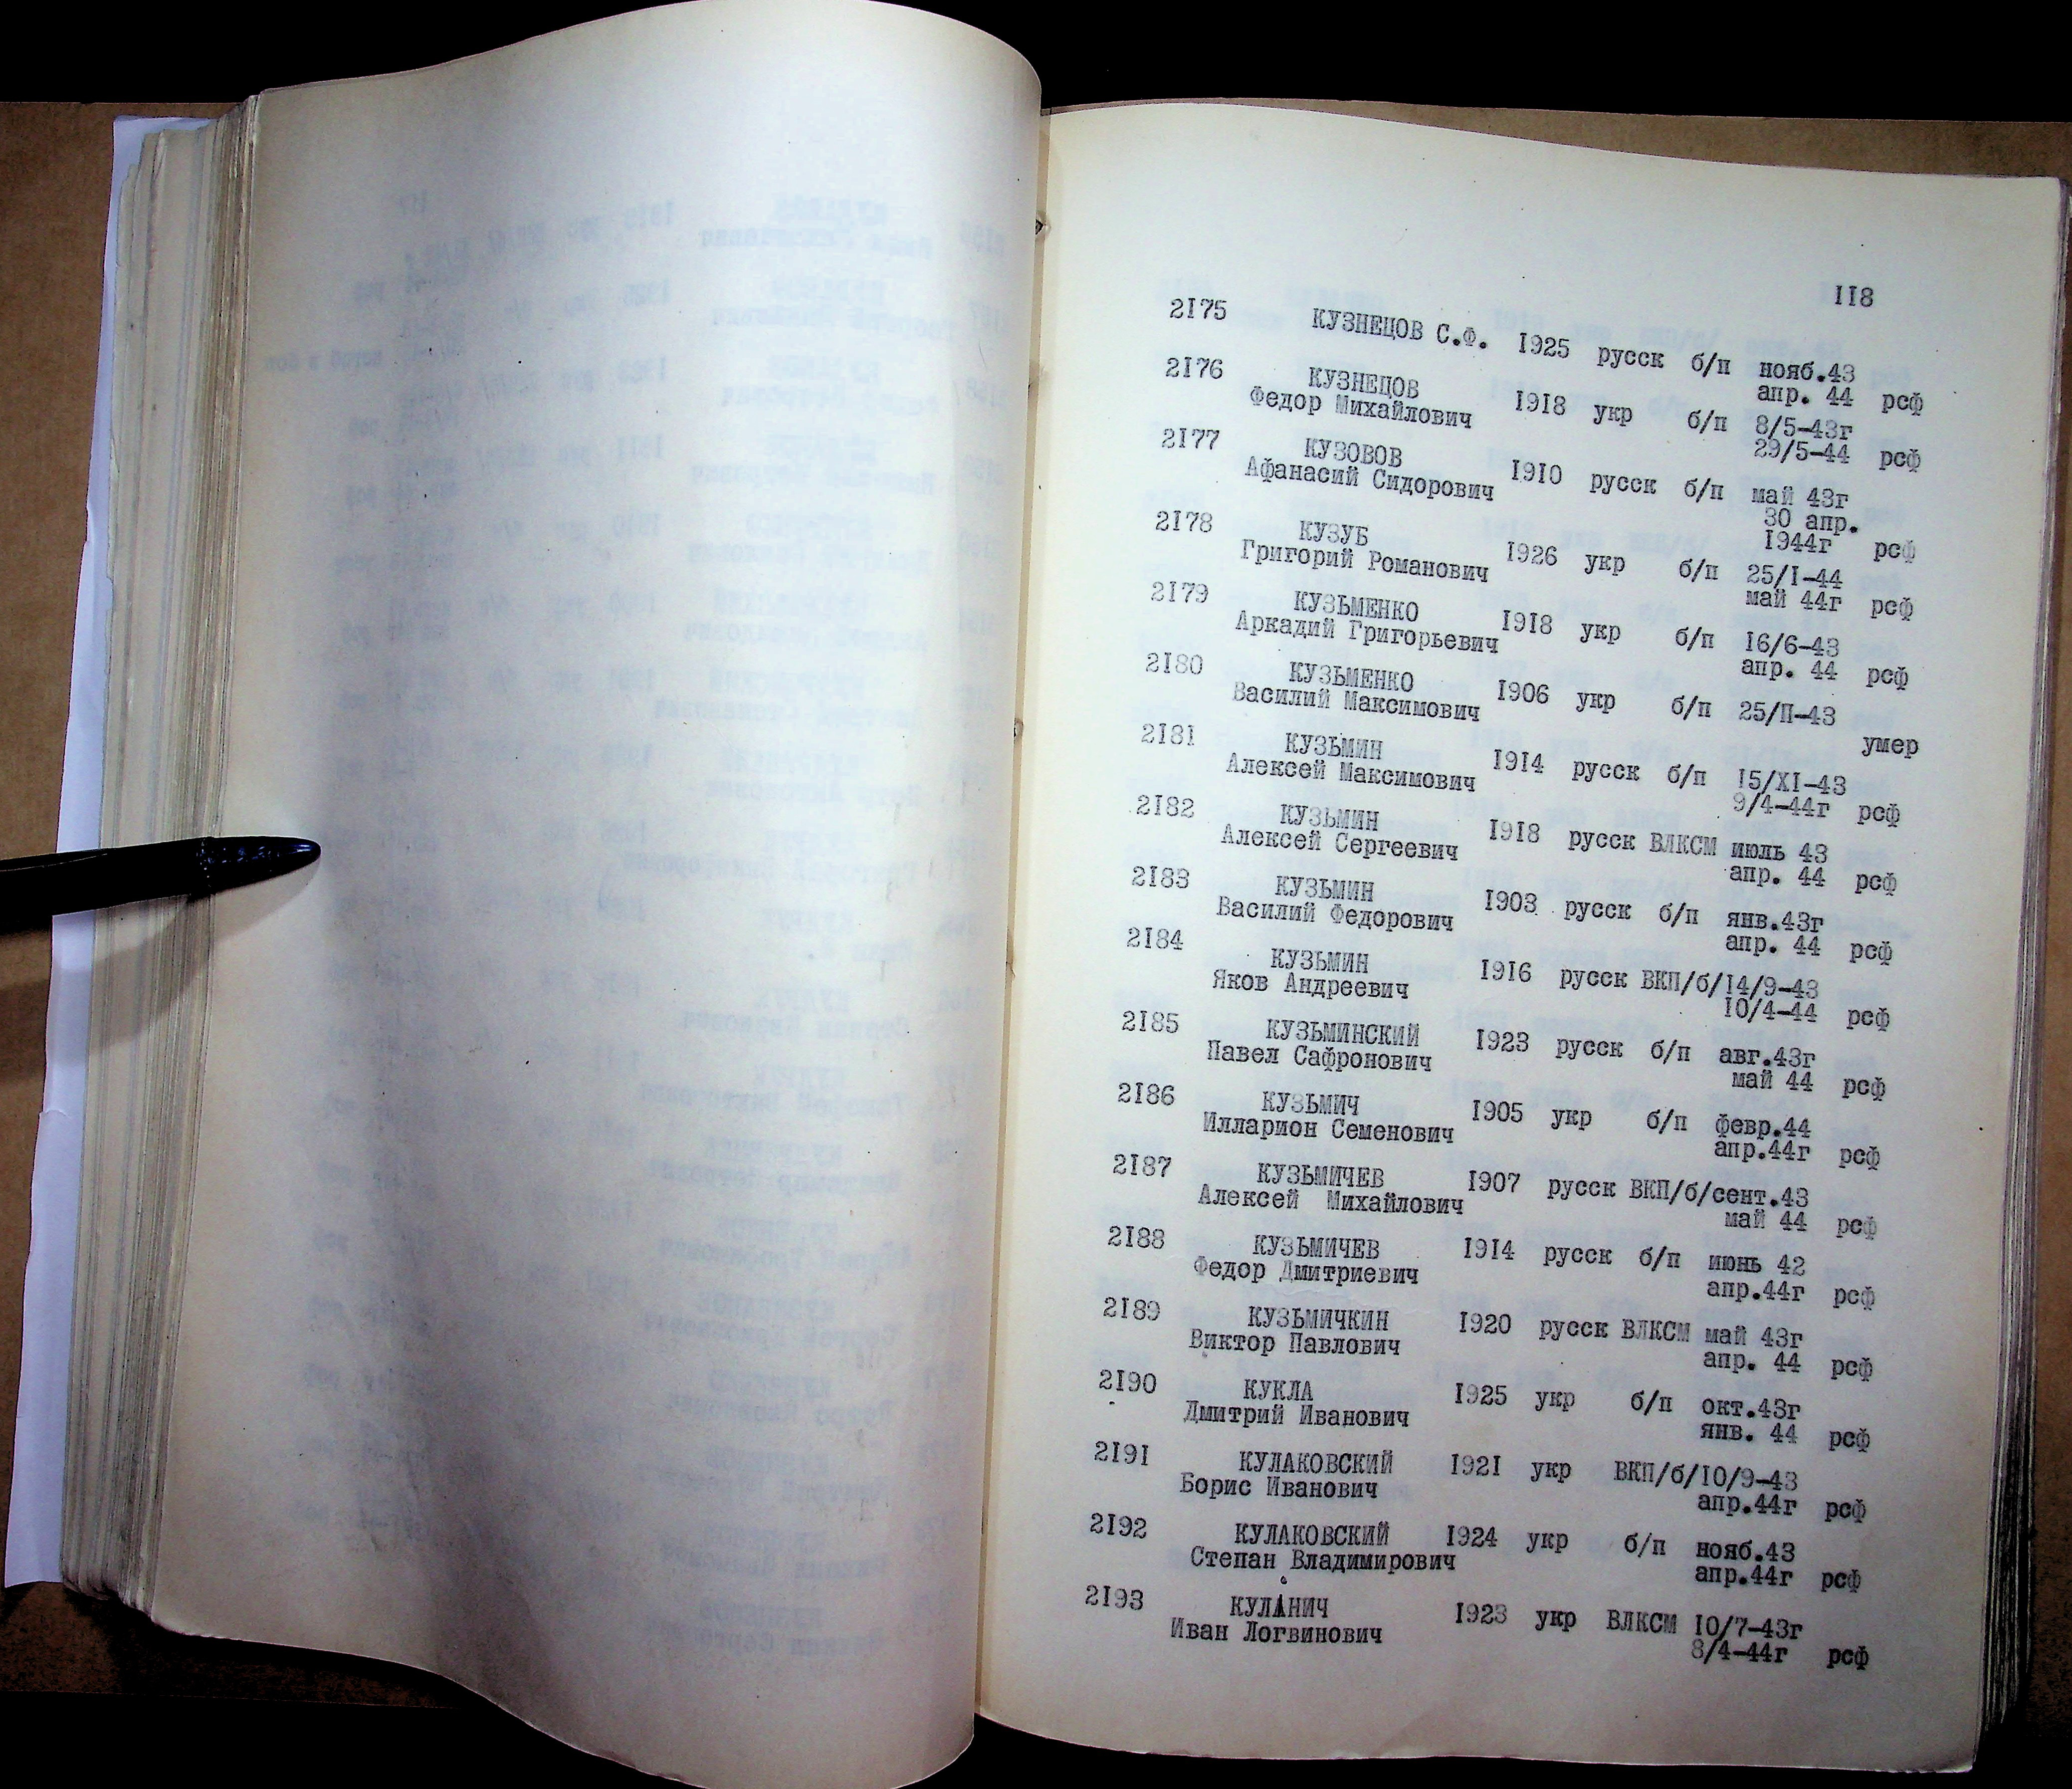 118
2175 КУЗНЕЦОВ С.Ф. 1925 русск б/п нояб.43
апр. 44 рсф
2176 КУЗНЕЦОВ 1918 укр б/п 8/5-43г
Федор Михайлович 29/5-44 рсф
2177 КУЗОВОВ 1910 русск б/п май 43г
Афанасий Сидорович 30 апр.
1944г рсф
2178 КУЗУБ 1926 укр б/п 25/I-44
Григорий Романович май 44г рсф
2179 КУЗЬМЕНКО 1918 укр б/п 16/6-43
Аркадий Григорьевич апр. 44 рсф
2180 КУЗЬМЕНКО 1906 укр б/п 25/II-43
Василий Максимович умер
2181 КУЗЬМИН 1914 русск б/п 15/XI-43
Алексей Максимович 9/4-44г рсф
2182 КУЗЬМИН 1918 русск ВЛКСМ июль 43
Алексей Сергеевич апр. 44 рсф
2183 КУЗЬМИН 1903 русск б/п янв.43г
Василий Федорович апр. 44 рсф
2184 КУЗЬМИН 1916 русск ВКП/б/14/9-43
Яков Андреевич 10/4-44 рсф
2185 КУЗЬМИНСКИЙ 1923 русск б/п авг.43г
Павел Сафронович май 44 рсф
2186 КУЗЬМИЧ 1905 укр б/п февр.44
Илларион Семенович апр.44г рсф
2187 КУЗЬМИЧЕВ 1907 русск ВКП/б/сент.43
Алексей Михайлович май 44 рсф
2188 КУЗЬМИЧЕВ 1914 русск б/п июнь 42
Федор Дмитриевич апр.44г рсф
2189 КУЗЬМИЧКИН 1920 русск ВЛКСМ май 43г
Виктор Павлович апр. 44 рсф
2190 КУКЛА 1925 укр б/п окт.43г
Дмитрий Иванович янв. 44 рсф
2191 КУЛАКОВСКИЙ 1921 укр ВКП/б/10/9-43
Борис Иванович апр.44г рсф
2192 КУЛАКОВСКИЙ 1924 укр б/п нояб.43
Степан Владимирович апр.44г рсф
2193 КУЛАНИЧ 1923 укр ВЛКСМ 10/7-43г
Иван Логвинович 8/4-44г рсф